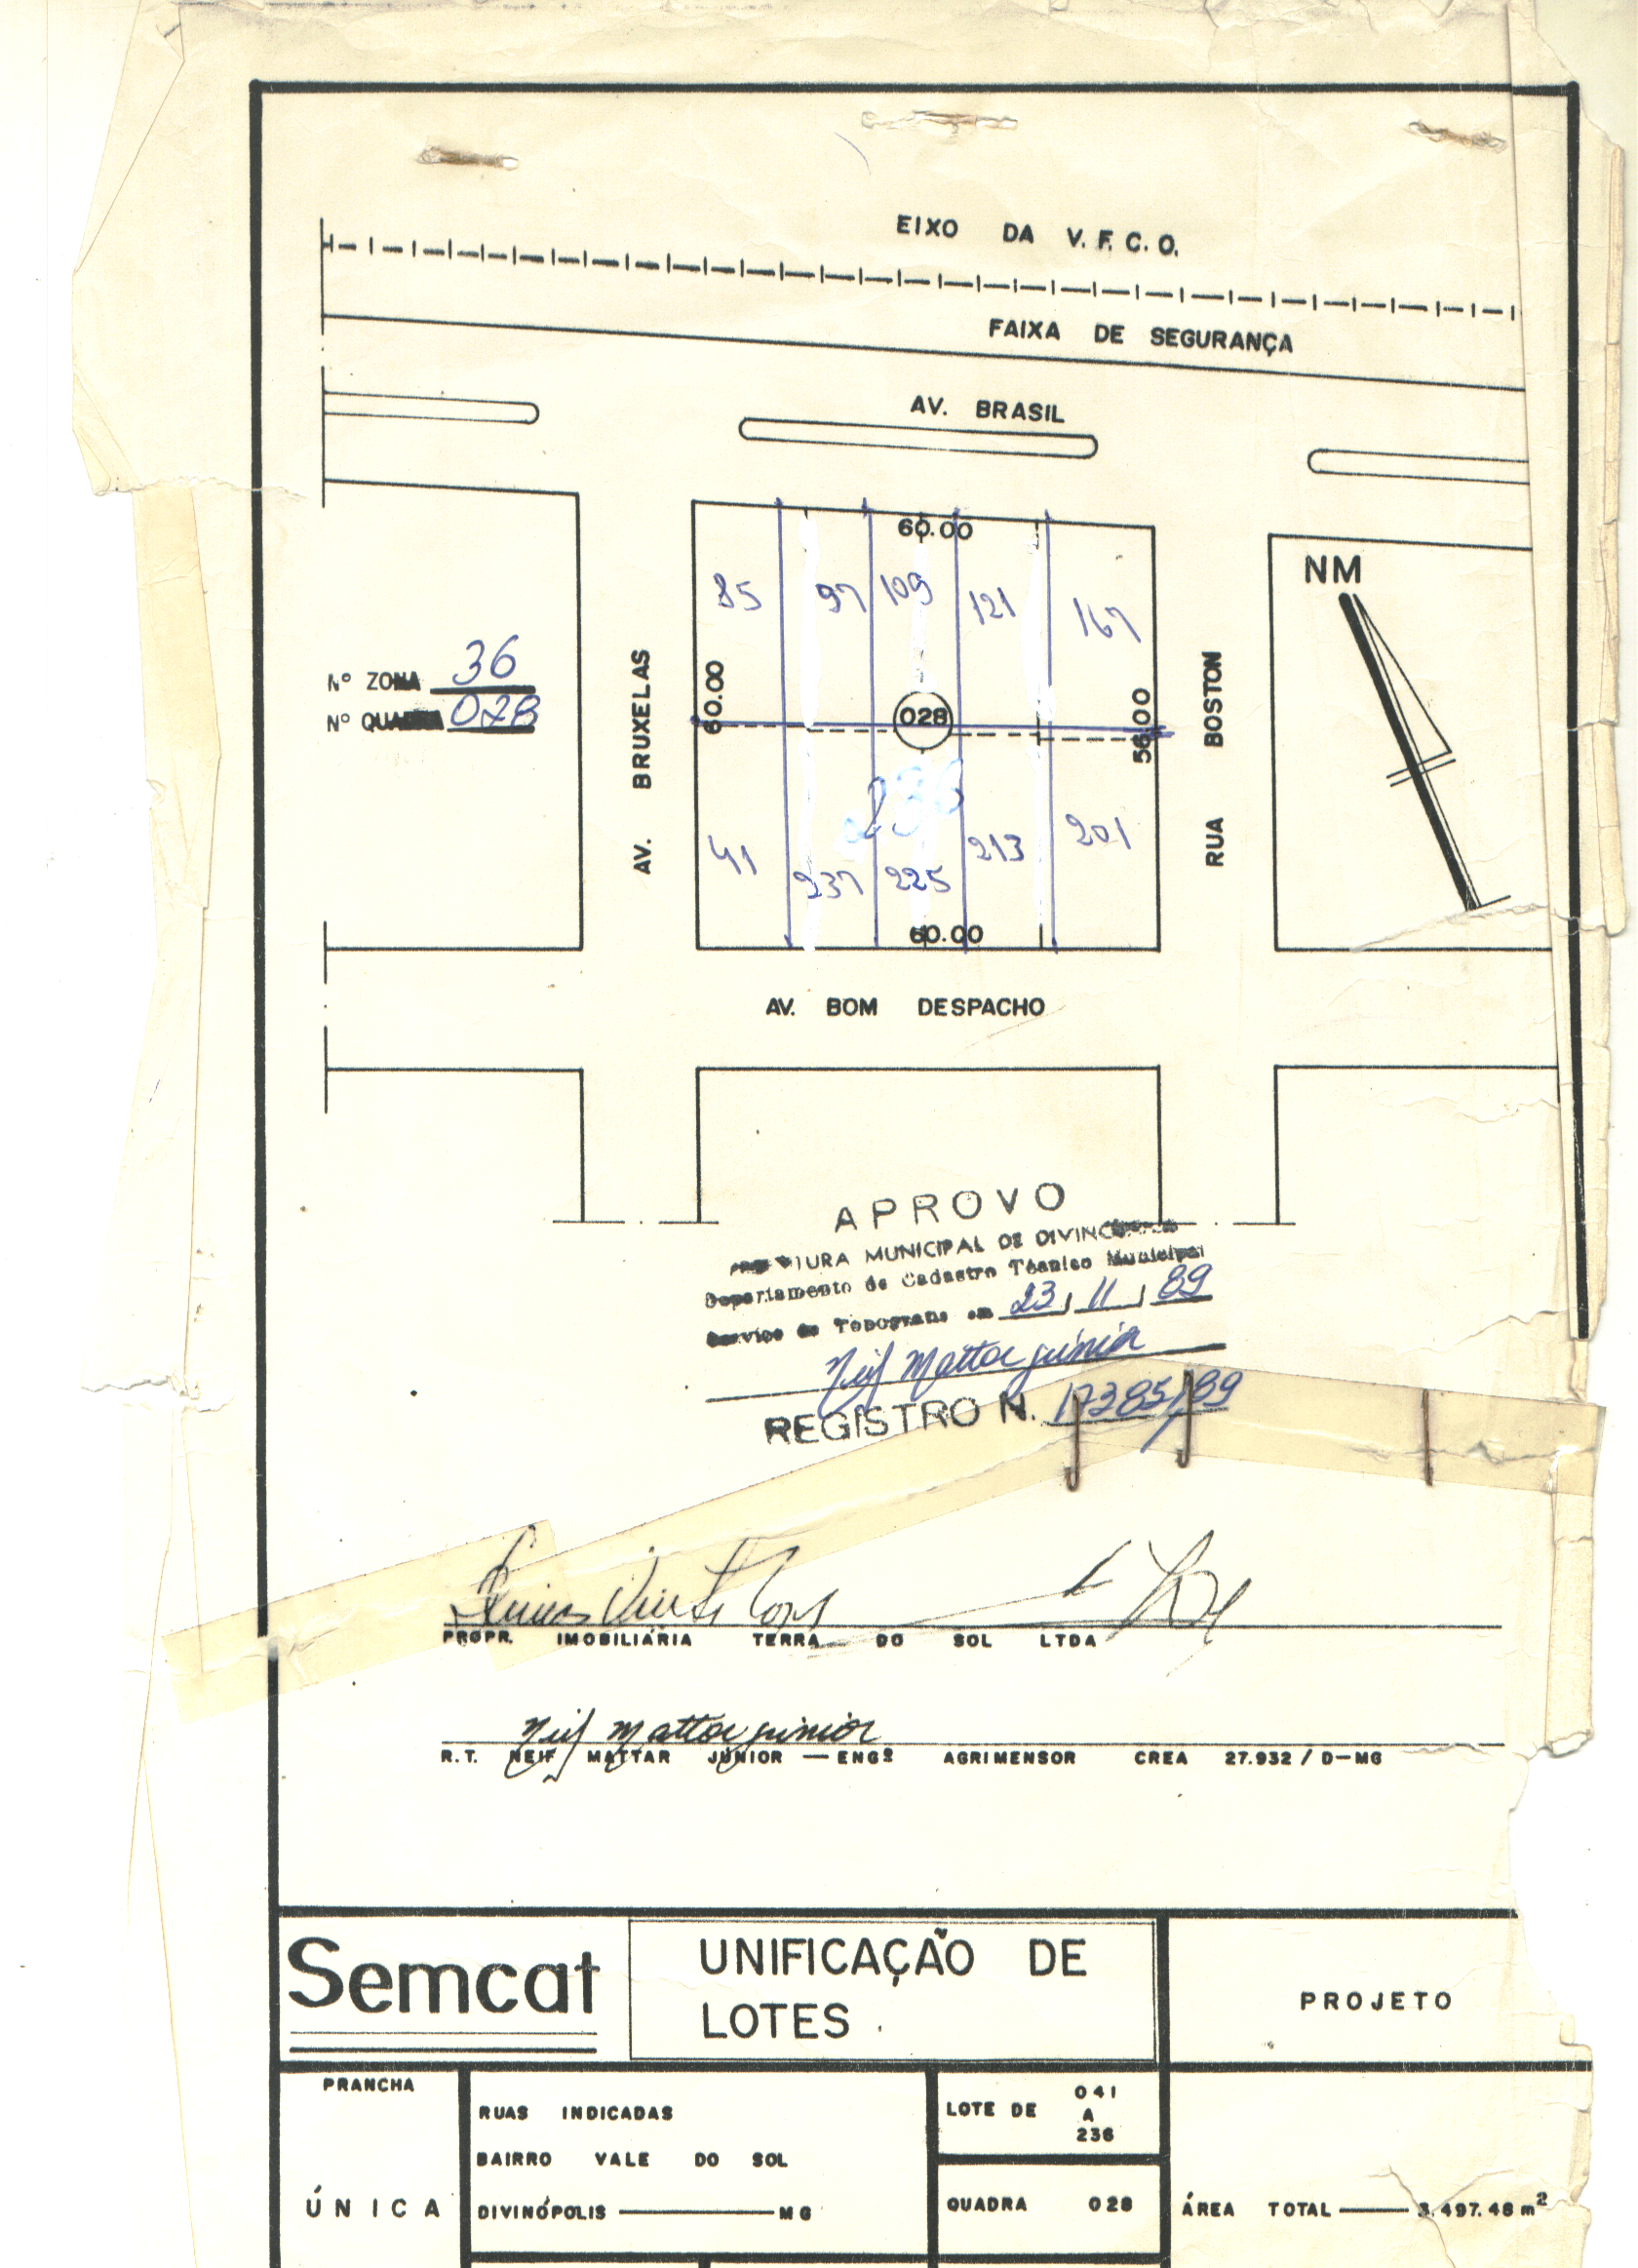 EIXO DA V.F.C.O.
FAIXA DE SEGURANÇA
AV. BRASIL
60.00
NM
85 97 109 121 167
Nº ZONA 36
Nº QUADRA 028
AV. BRUXELAS
60.00
028
56.00
RUA BOSTON
236
41 237 225 213 201
60.00
AV. BOM DESPACHO
APROVO
MUNICIPAL DE
Departamento de Cadastro Técnico Municipal
Serviço de em 23 / 11 / 89
Neif Mattar júnior
REGISTRO N. 17385/89
PROPR. IMOBILIÁRIA TERRA DO SOL LTDA
Neif Mattar júnior
R.T. NEIF MATTAR JÚNIOR — ENGº AGRIMENSOR CREA 27.932 / D-MG
Semcat
UNIFICAÇÃO DE
LOTES
PROJETO
PRANCHA
ÚNICA
RUAS INDICADAS
BAIRRO VALE DO SOL
DIVINÓPOLIS — MG
LOTE DE 041
A
236
QUADRA 028
ÁREA TOTAL — 3.497.48 m²